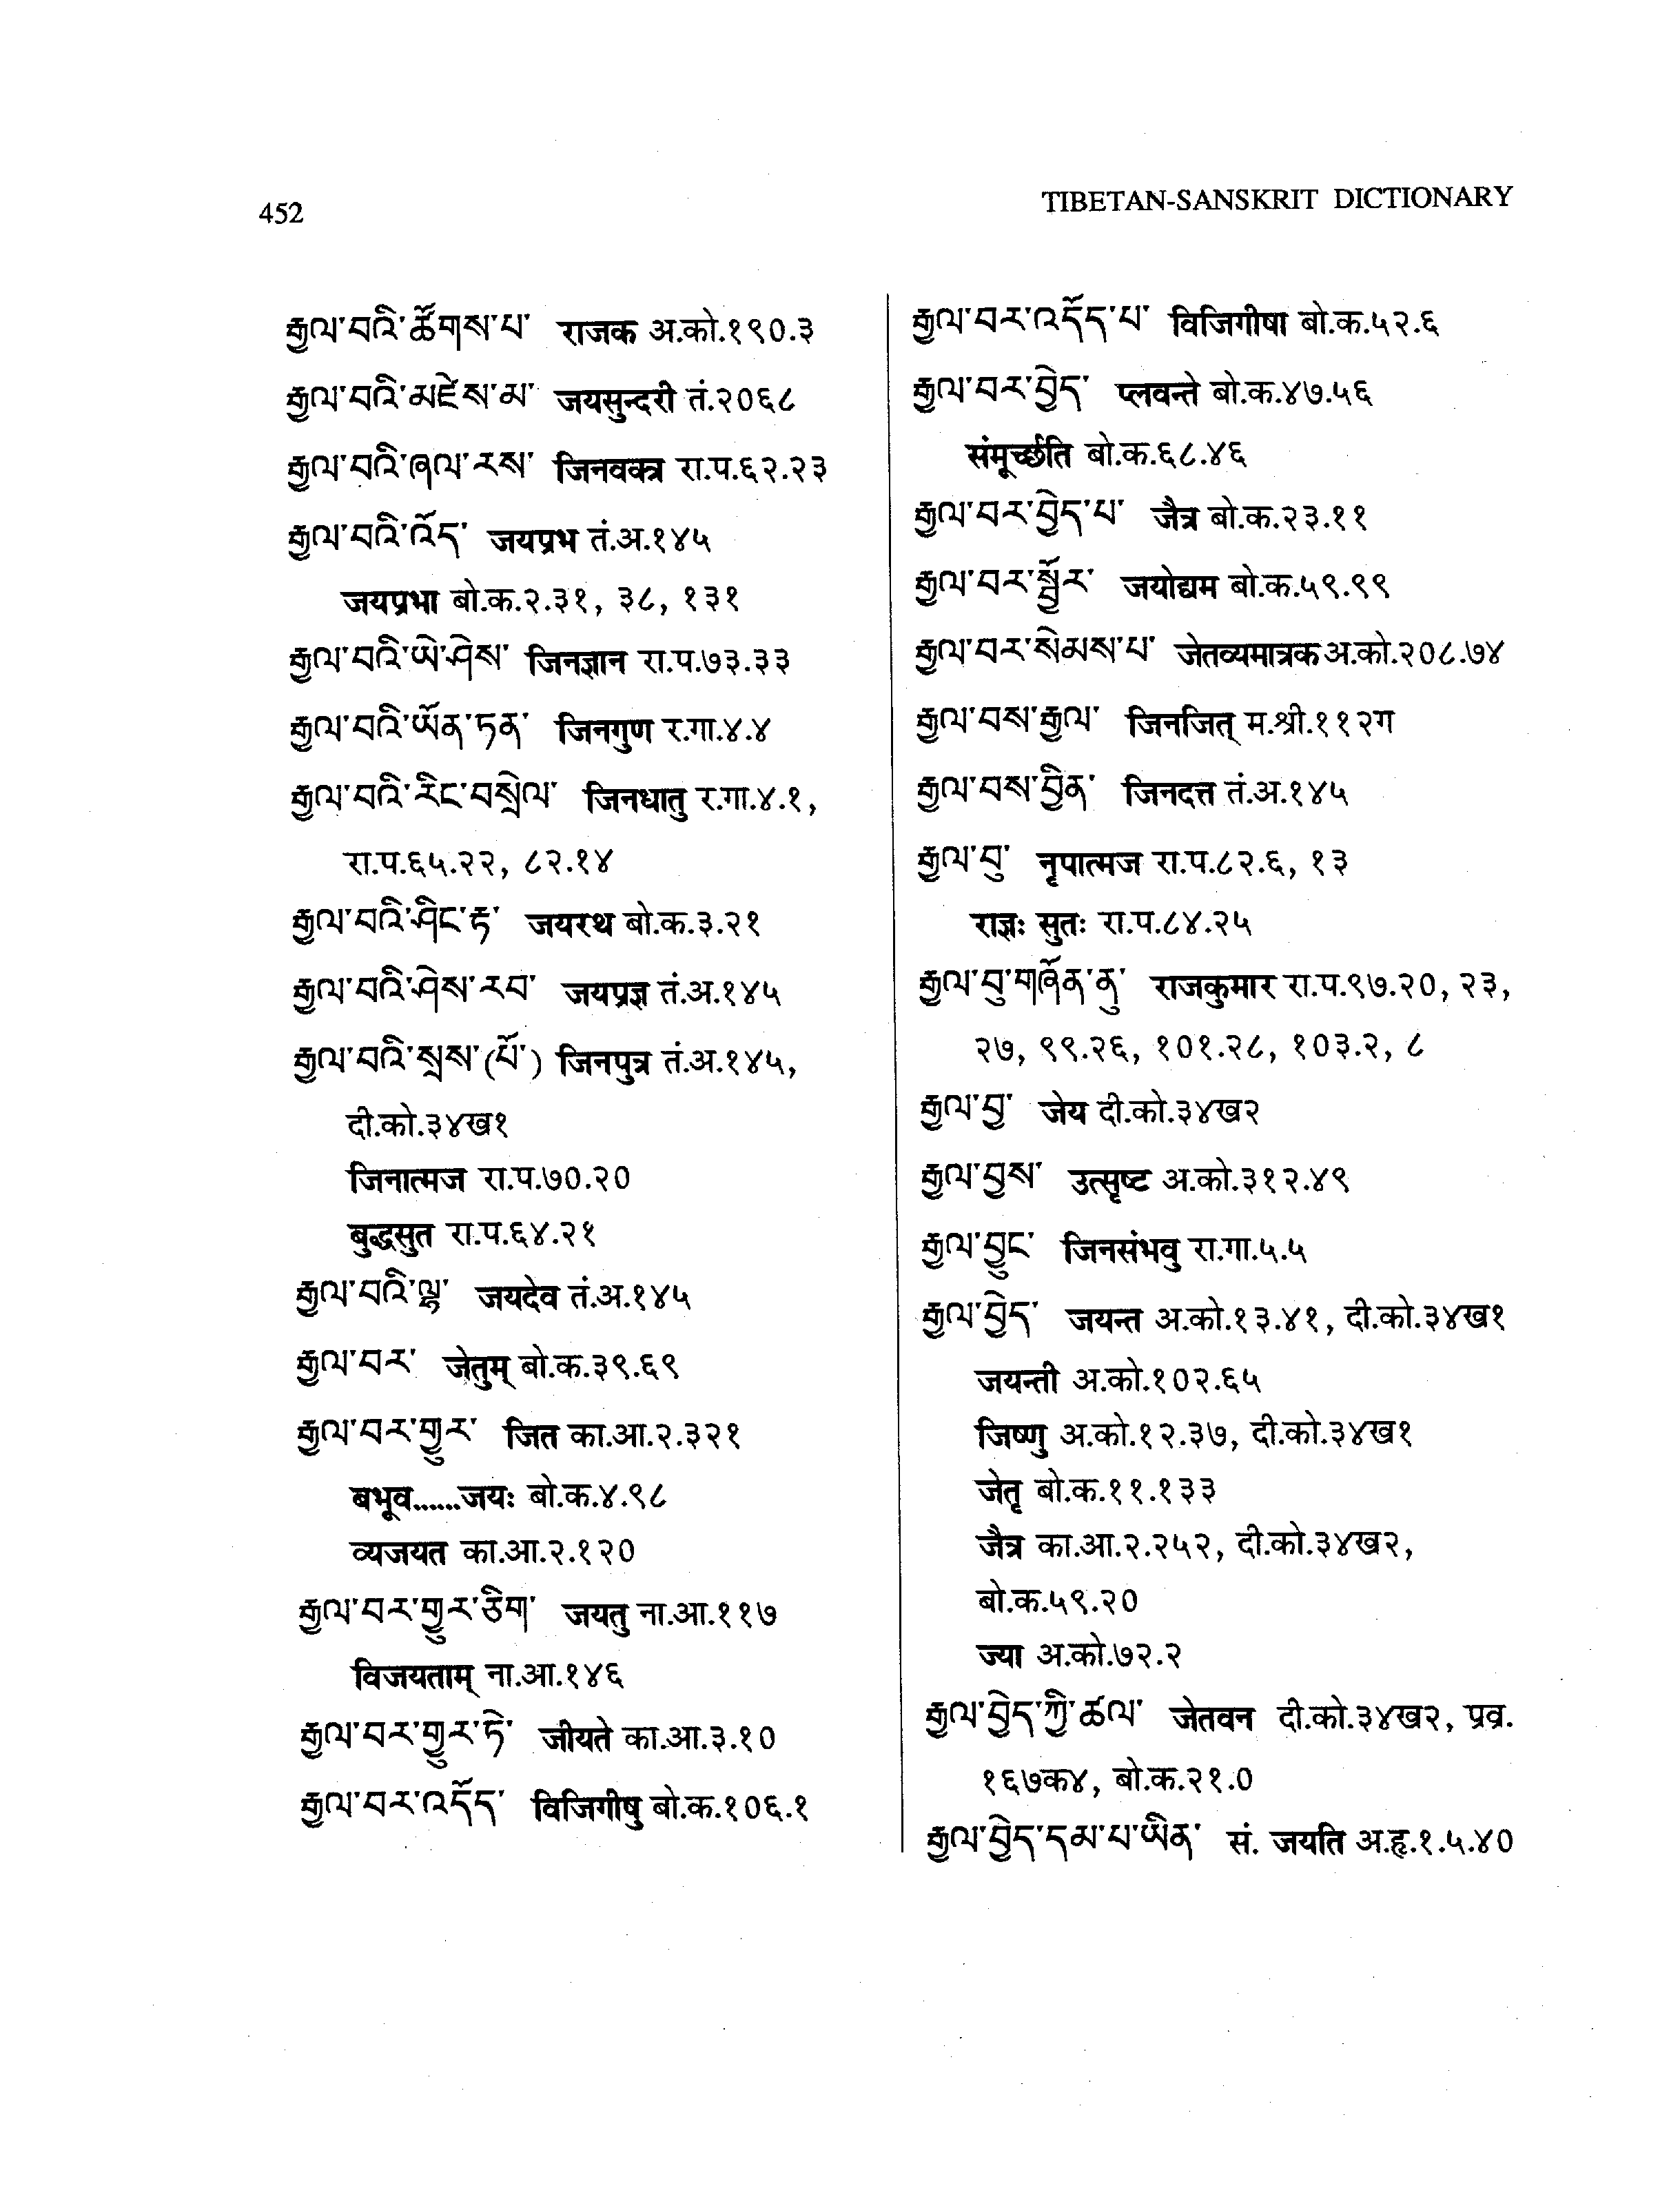 452
TIBETAN-SANSKRIT DICTIONARY
རྒྱལ་བའི་ཚོགས་པ་ राजक अ.को.१९०.३
རྒྱལ་བའི་མཛེས་མ་ जयसुन्दरी तं.२०६८
རྒྱལ་བའི་ཞལ་རས་ जिनवक्त्र रा.प.६२.२३
རྒྱལ་བའི་འོད་ जयप्रभ तं.अ.१४५
जयप्रभा बो.क.२.३१, ३८, १३१
རྒྱལ་བའི་ཡེ་ཤེས་ जिनज्ञान रा.प.७३.३३
རྒྱལ་བའི་ཡོན་ཏན་ जिनगुण र.गा.४.४
རྒྱལ་བའི་རིང་བསྲེལ་ जिनधातु र.गा.४.१,
रा.प.६५.२२, ८२.१४
རྒྱལ་བའི་ཤིང་རྟ་ जयरथ बो.क.३.२१
རྒྱལ་བའི་ཤེས་རབ་ जयप्रज्ञ तं.अ.१४५
རྒྱལ་བའི་སྲས་(པོ་) जिनपुत्र तं.अ.१४५,
दी.को.३४ख१
जिनात्मज रा.प.७०.२०
बुद्धसुत रा.प.६४.२१
རྒྱལ་བའི་ལྷ་ जयदेव तं.अ.१४५
རྒྱལ་བར་ जेतुम् बो.क.३९.६९
རྒྱལ་བར་གྱུར་ जित का.आ.२.३२१
बभूव......जयः बो.क.४.९८
व्यजयत का.आ.२.१२०
རྒྱལ་བར་གྱུར་ཅིག་ जयतु ना.आ.११७
विजयताम् ना.आ.१४६
རྒྱལ་བར་གྱུར་ཏེ་ जीयते का.आ.३.१०
རྒྱལ་བར་འདོད་ विजिगीषु बो.क.१०६.१
རྒྱལ་བར་འདོད་པ་ विजिगीषा बो.क.५२.६
རྒྱལ་བར་བྱེད་ प्लवन्ते बो.क.४७.५६
संमूर्च्छति बो.क.६८.४६
རྒྱལ་བར་བྱེད་པ་ जैत्र बो.क.२३.११
རྒྱལ་བར་སྦྱོར་ जयोद्यम बो.क.५९.९९
རྒྱལ་བར་སེམས་པ་ जेतव्यमात्रक अ.को.२०८.७४
རྒྱལ་བས་རྒྱལ་ जिनजित् म.श्री.११२ग
རྒྱལ་བས་བྱིན་ जिनदत्त तं.अ.१४५
རྒྱལ་བུ་ नृपात्मज रा.प.८२.६, १३
राज्ञः सुतः रा.प.८४.२५
རྒྱལ་བུ་གཞོན་ནུ་ राजकुमार रा.प.९७.२०, २३,
२७, ९९.२६, १०१.२८, १०३.२, ८
རྒྱལ་བྱ་ जेय दी.को.३४ख२
རྒྱལ་བྱས་ उत्सृष्ट अ.को.३१२.४९
རྒྱལ་བྱུང་ जिनसंभवु रा.गा.५.५
རྒྱལ་བྱེད་ जयन्त अ.को.१३.४१, दी.को.३४ख१
जयन्ती अ.को.१०२.६५
जिष्णु अ.को.१२.३७, दी.को.३४ख१
जेतृ बो.क.११.१३३
जैत्र का.आ.२.२५२, दी.को.३४ख२,
बो.क.५९.२०
ज्या अ.को.७२.२
རྒྱལ་བྱེད་ཀྱི་ཚལ་ जेतवन दी.को.३४ख२, प्रव्र.
१६७क४, बो.क.२१.०
རྒྱལ་བྱེད་དམ་པ་ཡིན་ सं. जयति अ.हृ.१.५.४०